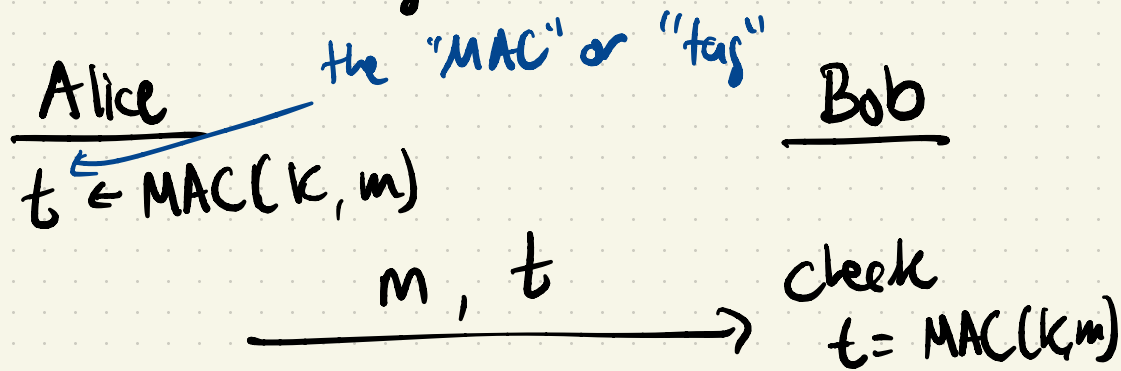 the "MAC" or "tag"
Alice
Bob
t ← MAC(K, m)
m, t
check
t = MAC(K, m)